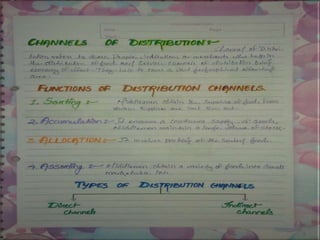 Date
Page
CHANNELS OF DISTRIBUTION:-
Channel of Distri-
bution refers to those People, institution or merchants who help in
the distribution of goods and services. Channels of distribution bring
economy of effort. They help to cover a vast geographical
area
FUNCTIONS OF DISTRIBUTION CHANNELS.
1. Sorting :- Middlemen obtain the supplies of goods from
various suppliers and sort them
2. Accumulation :- To ensure a continuous supply of goods,
Middlemen maintain a large volume of stock.
3. ALLOCATION :- It involves packing of the sorted goods
4. Assorting :- Middlemen obtain a variety of goods
TYPES OF DISTRIBUTION CHANNELS
Direct Indirect
channels channels